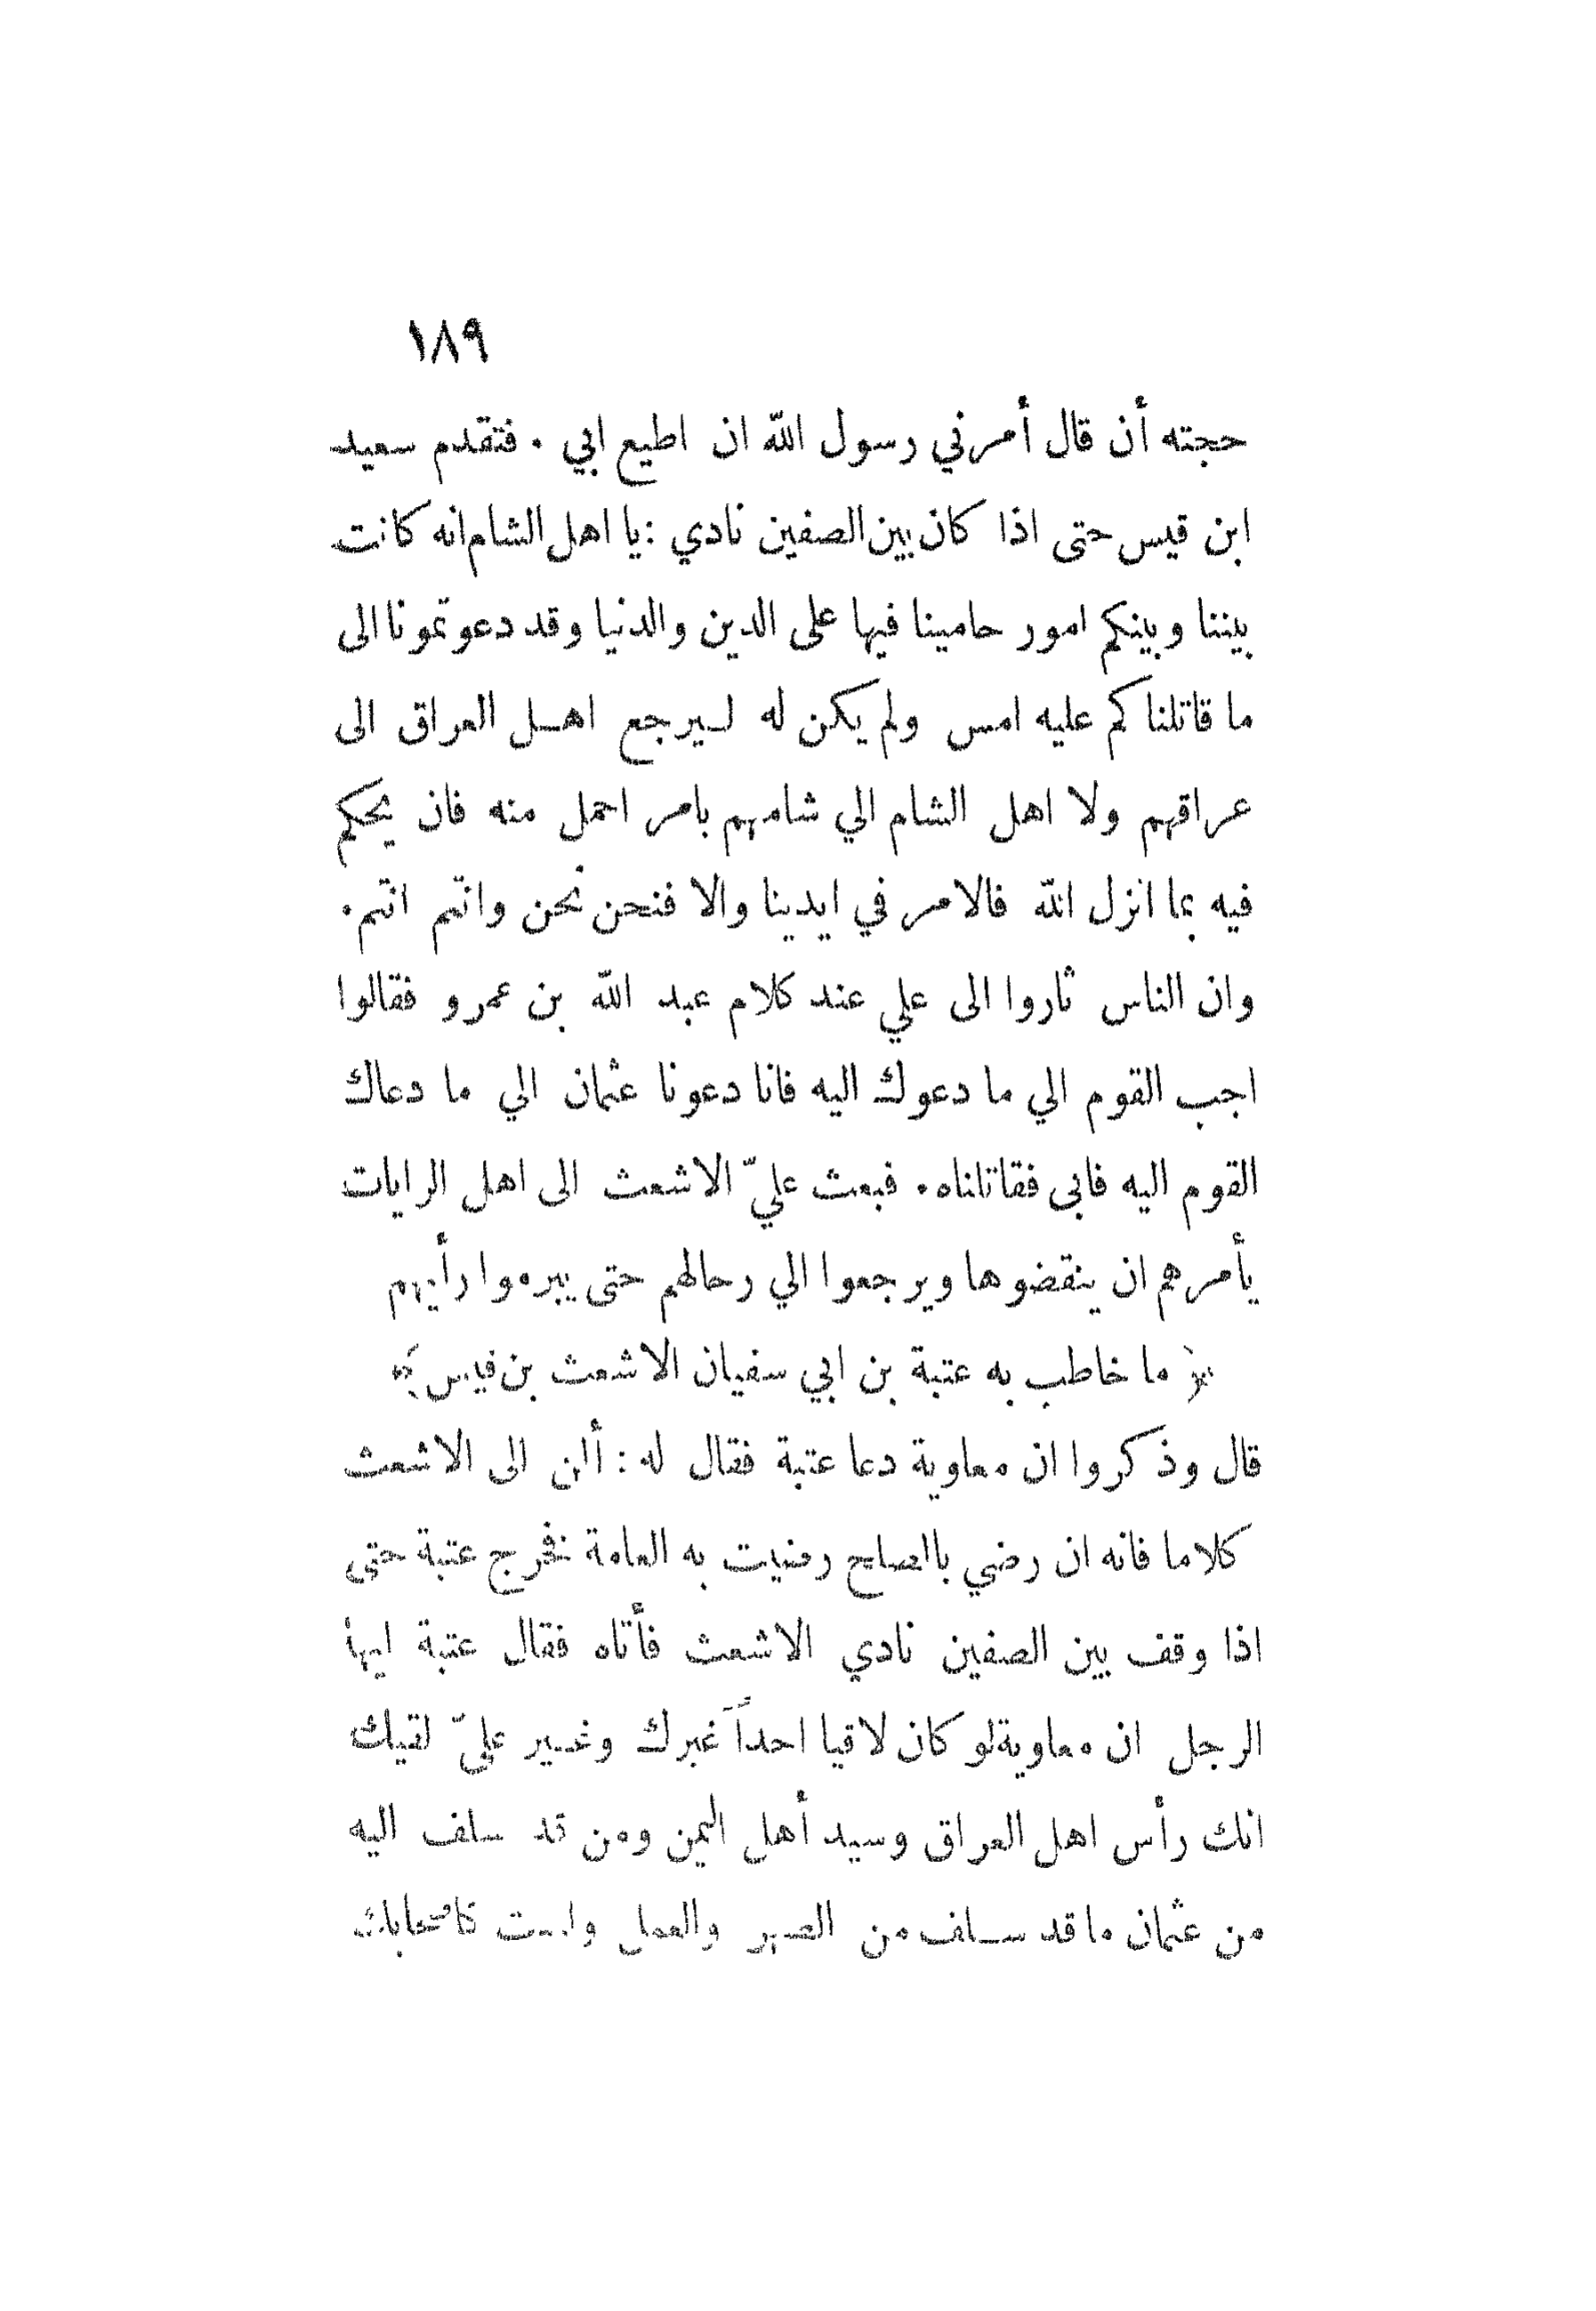 ١٨٩
حجته أن قال أمرني رسول الله ان اطيع ابي . فتقدم سعيد
ابن قيس حتى اذا كان بين الصفين نادي : يا اهل الشام انه كانت
بيننا وبينكم امور حامينا فيها على الدين والدنيا وقد دعوتمونا الى
ما قاتلناكم عليه امس ولم يكن له ليرجع اهل العراق الى
عراقهم ولا اهل الشام الي شامهم بامر اجمل منه فان يحكم
فيه بما انزل الله فالامر في ايدينا والا فنحن نحن وانتم انتم .
وان الناس ثاروا الى علي عند كلام عبد الله بن عمرو فقالوا
اجب القوم الي ما دعوك اليه فانا دعونا عثمان الي ما دعاك
القوم اليه فابى فقاتلناه . فبعث عليّ الاشعث الى اهل الرايات
يأمرهم ان ينقضوها ويرجعوا الي رحالهم حتى يبرموا رأيهم
﴿ ما خاطب به عتبة بن ابي سفيان الاشعث بن قيس ﴾
قال وذكروا ان معاوية دعا عتبة فقال له : ألن الى الاشعث
كلاما فانه ان رضي بالصلح رضيت به العامة فخرج عتبة حتى
اذا وقف بين الصفين نادي الاشعث فأتاه فقال عتبة ايها
الرجل ان معاوية لو كان لاقيا احداً غيرك وغير عليّ لقيك
انك رأس اهل العراق وسيد أهل اليمن ومن قد سلف اليه
من عثمان ما قد سلف من الصهر والعمل ولست كاصحابك